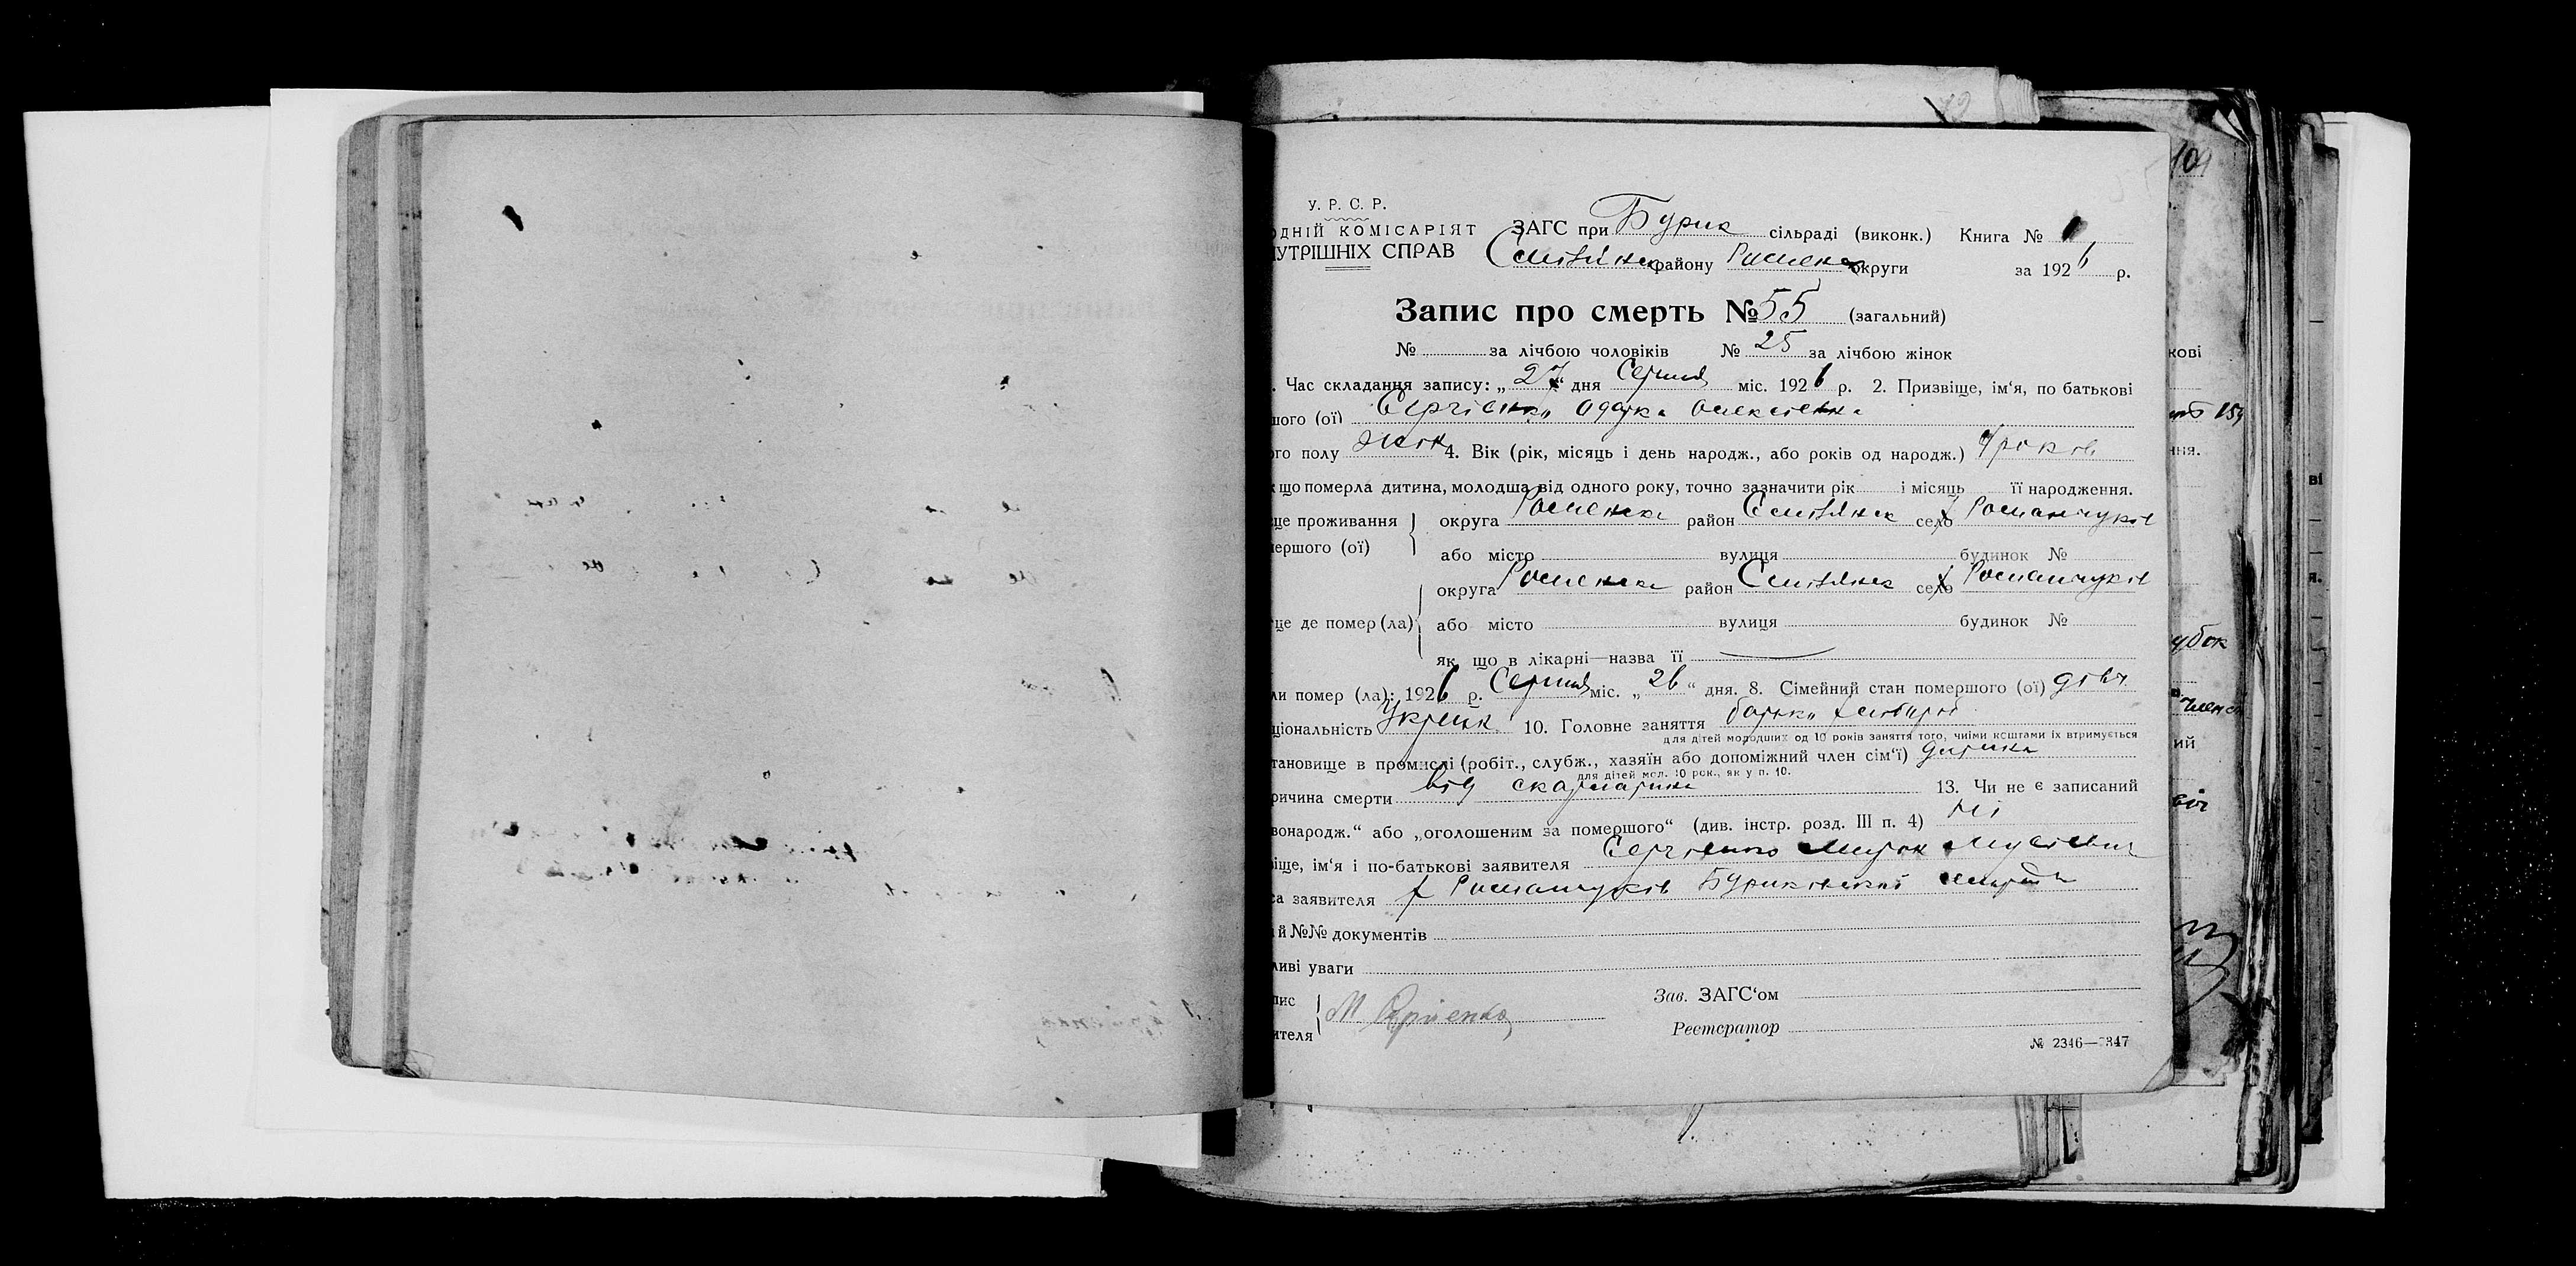 У. Р. С. Р.
ОДНІЙ КОМІСАРІЯТ ЗАГС при Бурик сільраді (виконк.) Книга № 1
УТРІШНІХ СПРАВ Смілянск району Роменск округи за 1926 р.
Запис про смерть № 55 (загальний)
№ за лічбою чоловіків № 25 за лічбою жінок
. Час складання запису: „27“ дня Серпня міс. 1926 р. 2. Призвіще, ім‘я, по батькові
шого (ої) Сергієнко Одарка Олексіевна
ого полу жінк 4. Вік (рік, місяць і день народж., або років од народж.) 4 років
к що померла дитина, молодша від одного року, точно зазначити рік і місяць її народження.
це проживання округа Роменска район Смілянск село х Романчуків
першого (ої) або місто вулиця будинок №
округа Роменска район Смілянск село х Романчуків
це де помер (ла) або місто вулиця будинок №
як що в лікарні—назва її
ли помер (ла): 1926 р. Серпня міс. „26“ дня. 8. Сімейний стан помершого (ої) дівч
ціональність Україн 10. Головне заняття батьки хлібороб
для дітей молодших од 10 років заняття того, чиїми коштами їх втримується
тановище в промислі (робіт., служб., хазяїн або допоміжний член сім‘ї)
для дітей мол. 10 рок., як у п. 10.
ричина смерти від скарлатини 13. Чи не є записаний
вонародж.“ або „оголошеним за помершого“ (див. інстр. розд. III п. 4) Ні
віще, ім‘я і по-батькові заявителя Сергієнко Мирон Мусієвич
са заявителя х Романчуків Буриківської сільради
і й №№ документів
ливі уваги
пис М Сергіенко Зав. ЗАГС‘ом
ителя Реєстратор
№ 2346—2347
104
кові
ння.
убок
ві